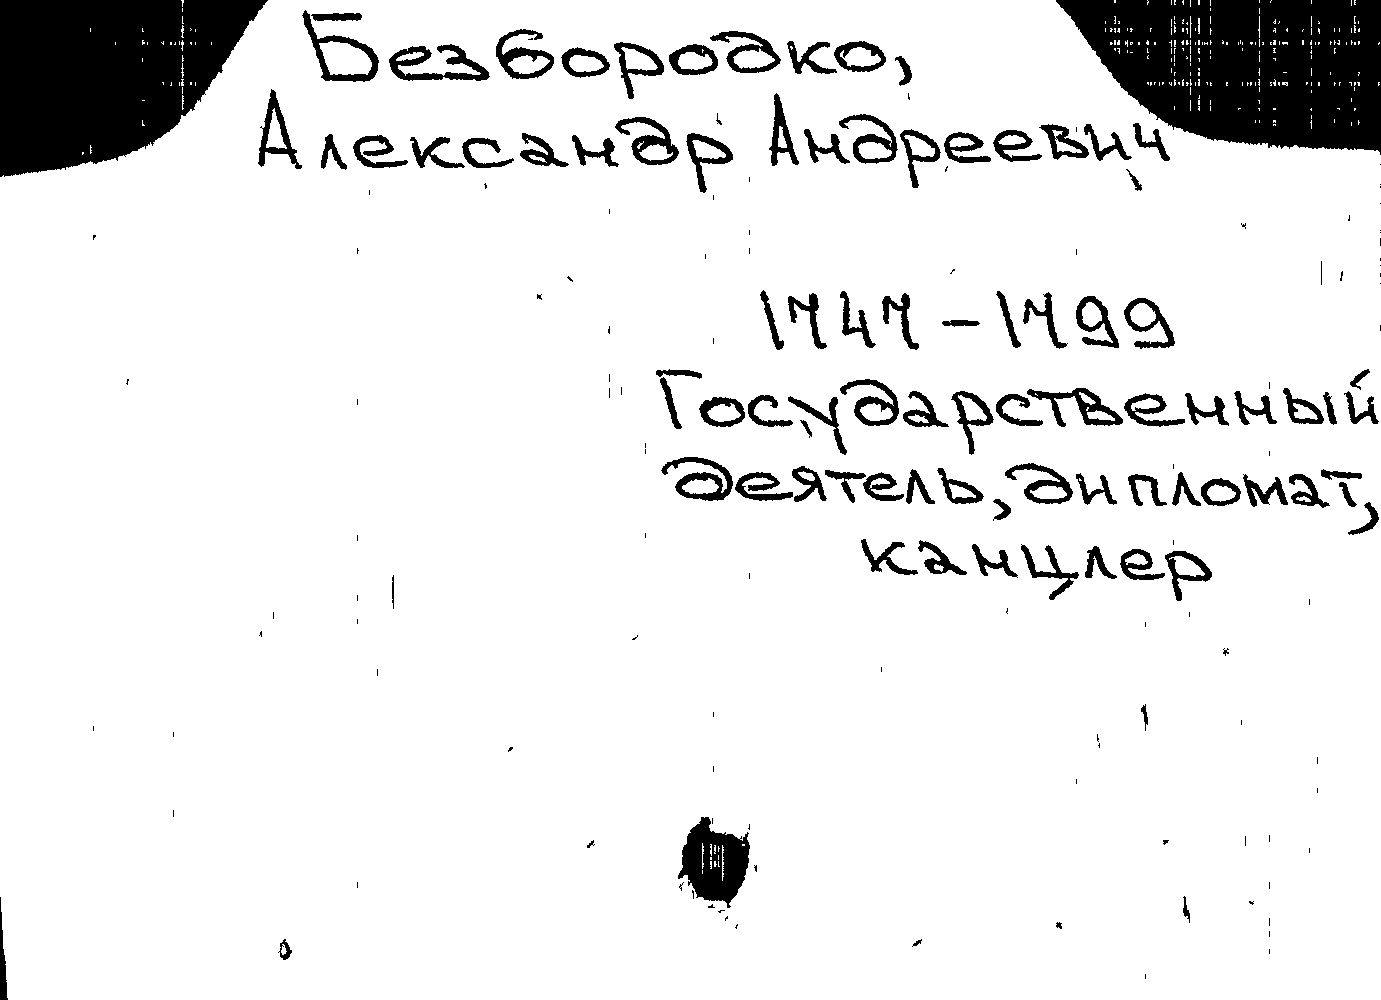 Безбородко,
Александр Андреевич
1747-1799
Государственный
деятель, дипломат,
канцлер